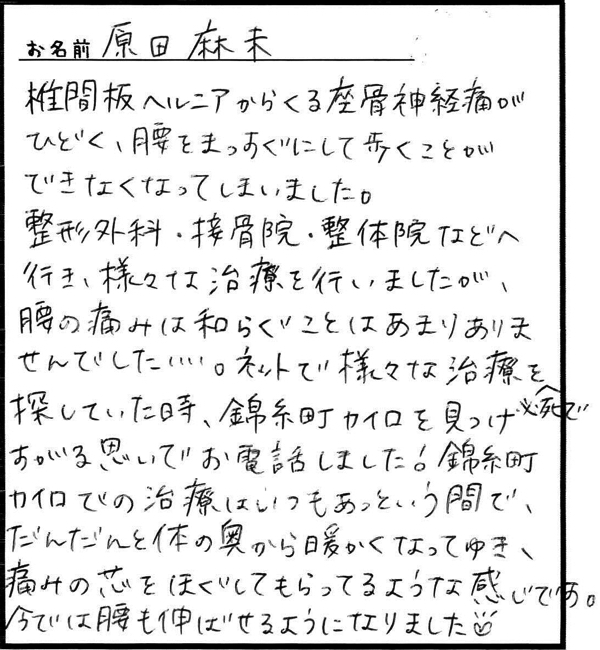 お名前 原田麻未
椎間板ヘルニアからくる座骨神経痛が
ひどく、腰をまっすぐにして歩くことが
できなくなってしまいました。
整形外科・接骨院・整体院などへ
行き、様々な治療を行いましたが、
腰の痛みは和らぐことはあまりありま
せんでした…。ネットで様々な治療を
探していた時、錦糸町カイロを見つけ必死で
すがる思いでお電話しました!錦糸町
カイロでの治療はいつもあっという間で、
だんだんと体の奥から暖かくなってゆき、
痛みの芯をほぐしてもらってるような感じです。
今では腰も伸ばせるようになりました